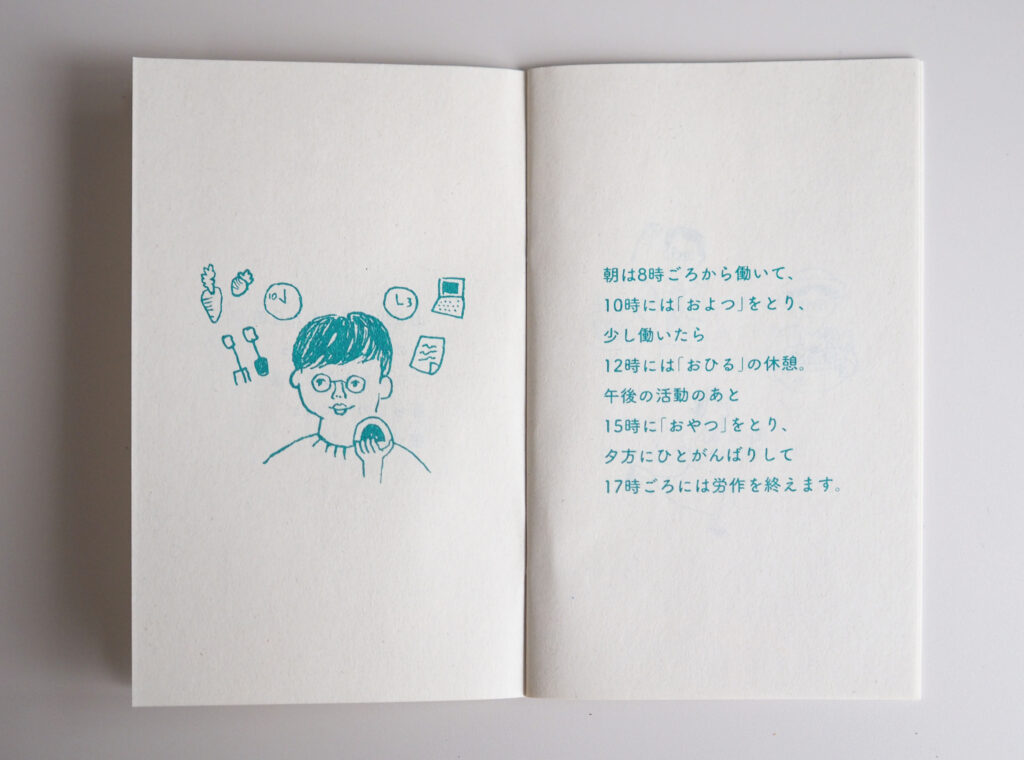 10
3
朝は8時ごろから働いて、
10時には「およつ」をとり、
少し働いたら
12時には「おひる」の休憩。
午後の活動のあと
15時に「おやつ」をとり、
夕方にひとがんばりして
17時ごろには労作を終えます。